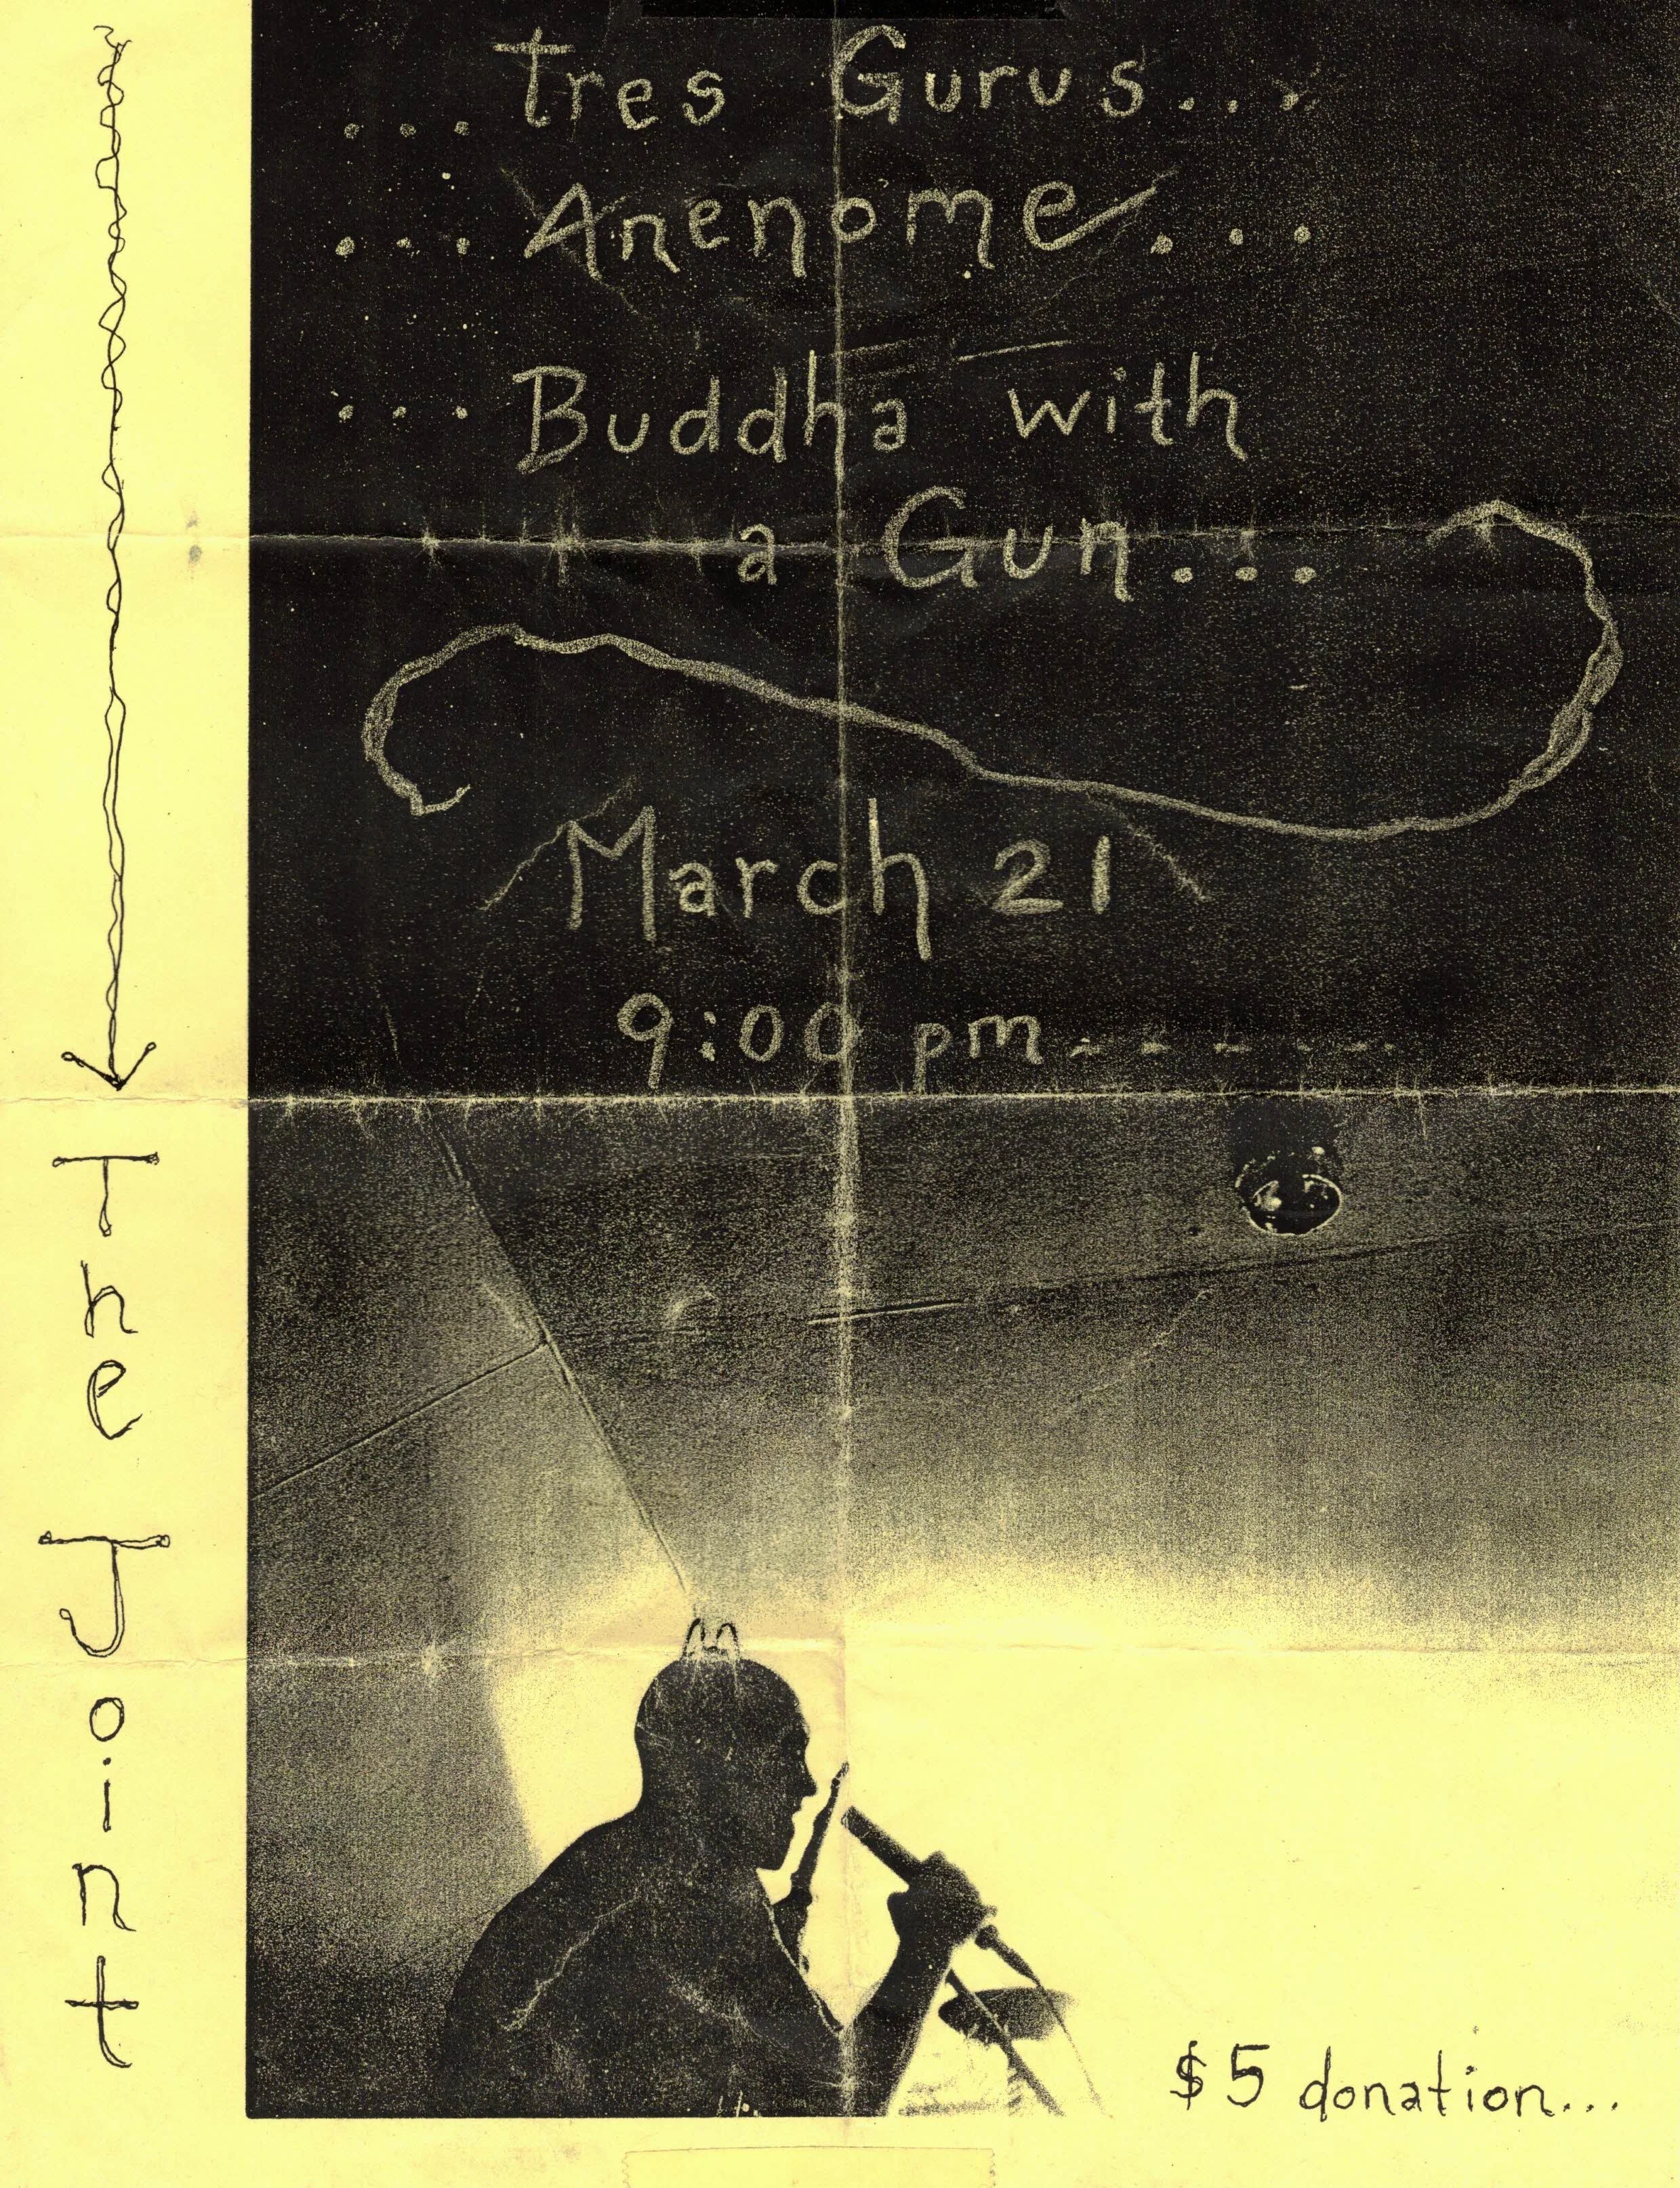 ...tres Gurus...
...Anenome...
...Buddha with
a Gun...
March 21
9:00 pm-----
The Joint
$5 donation...